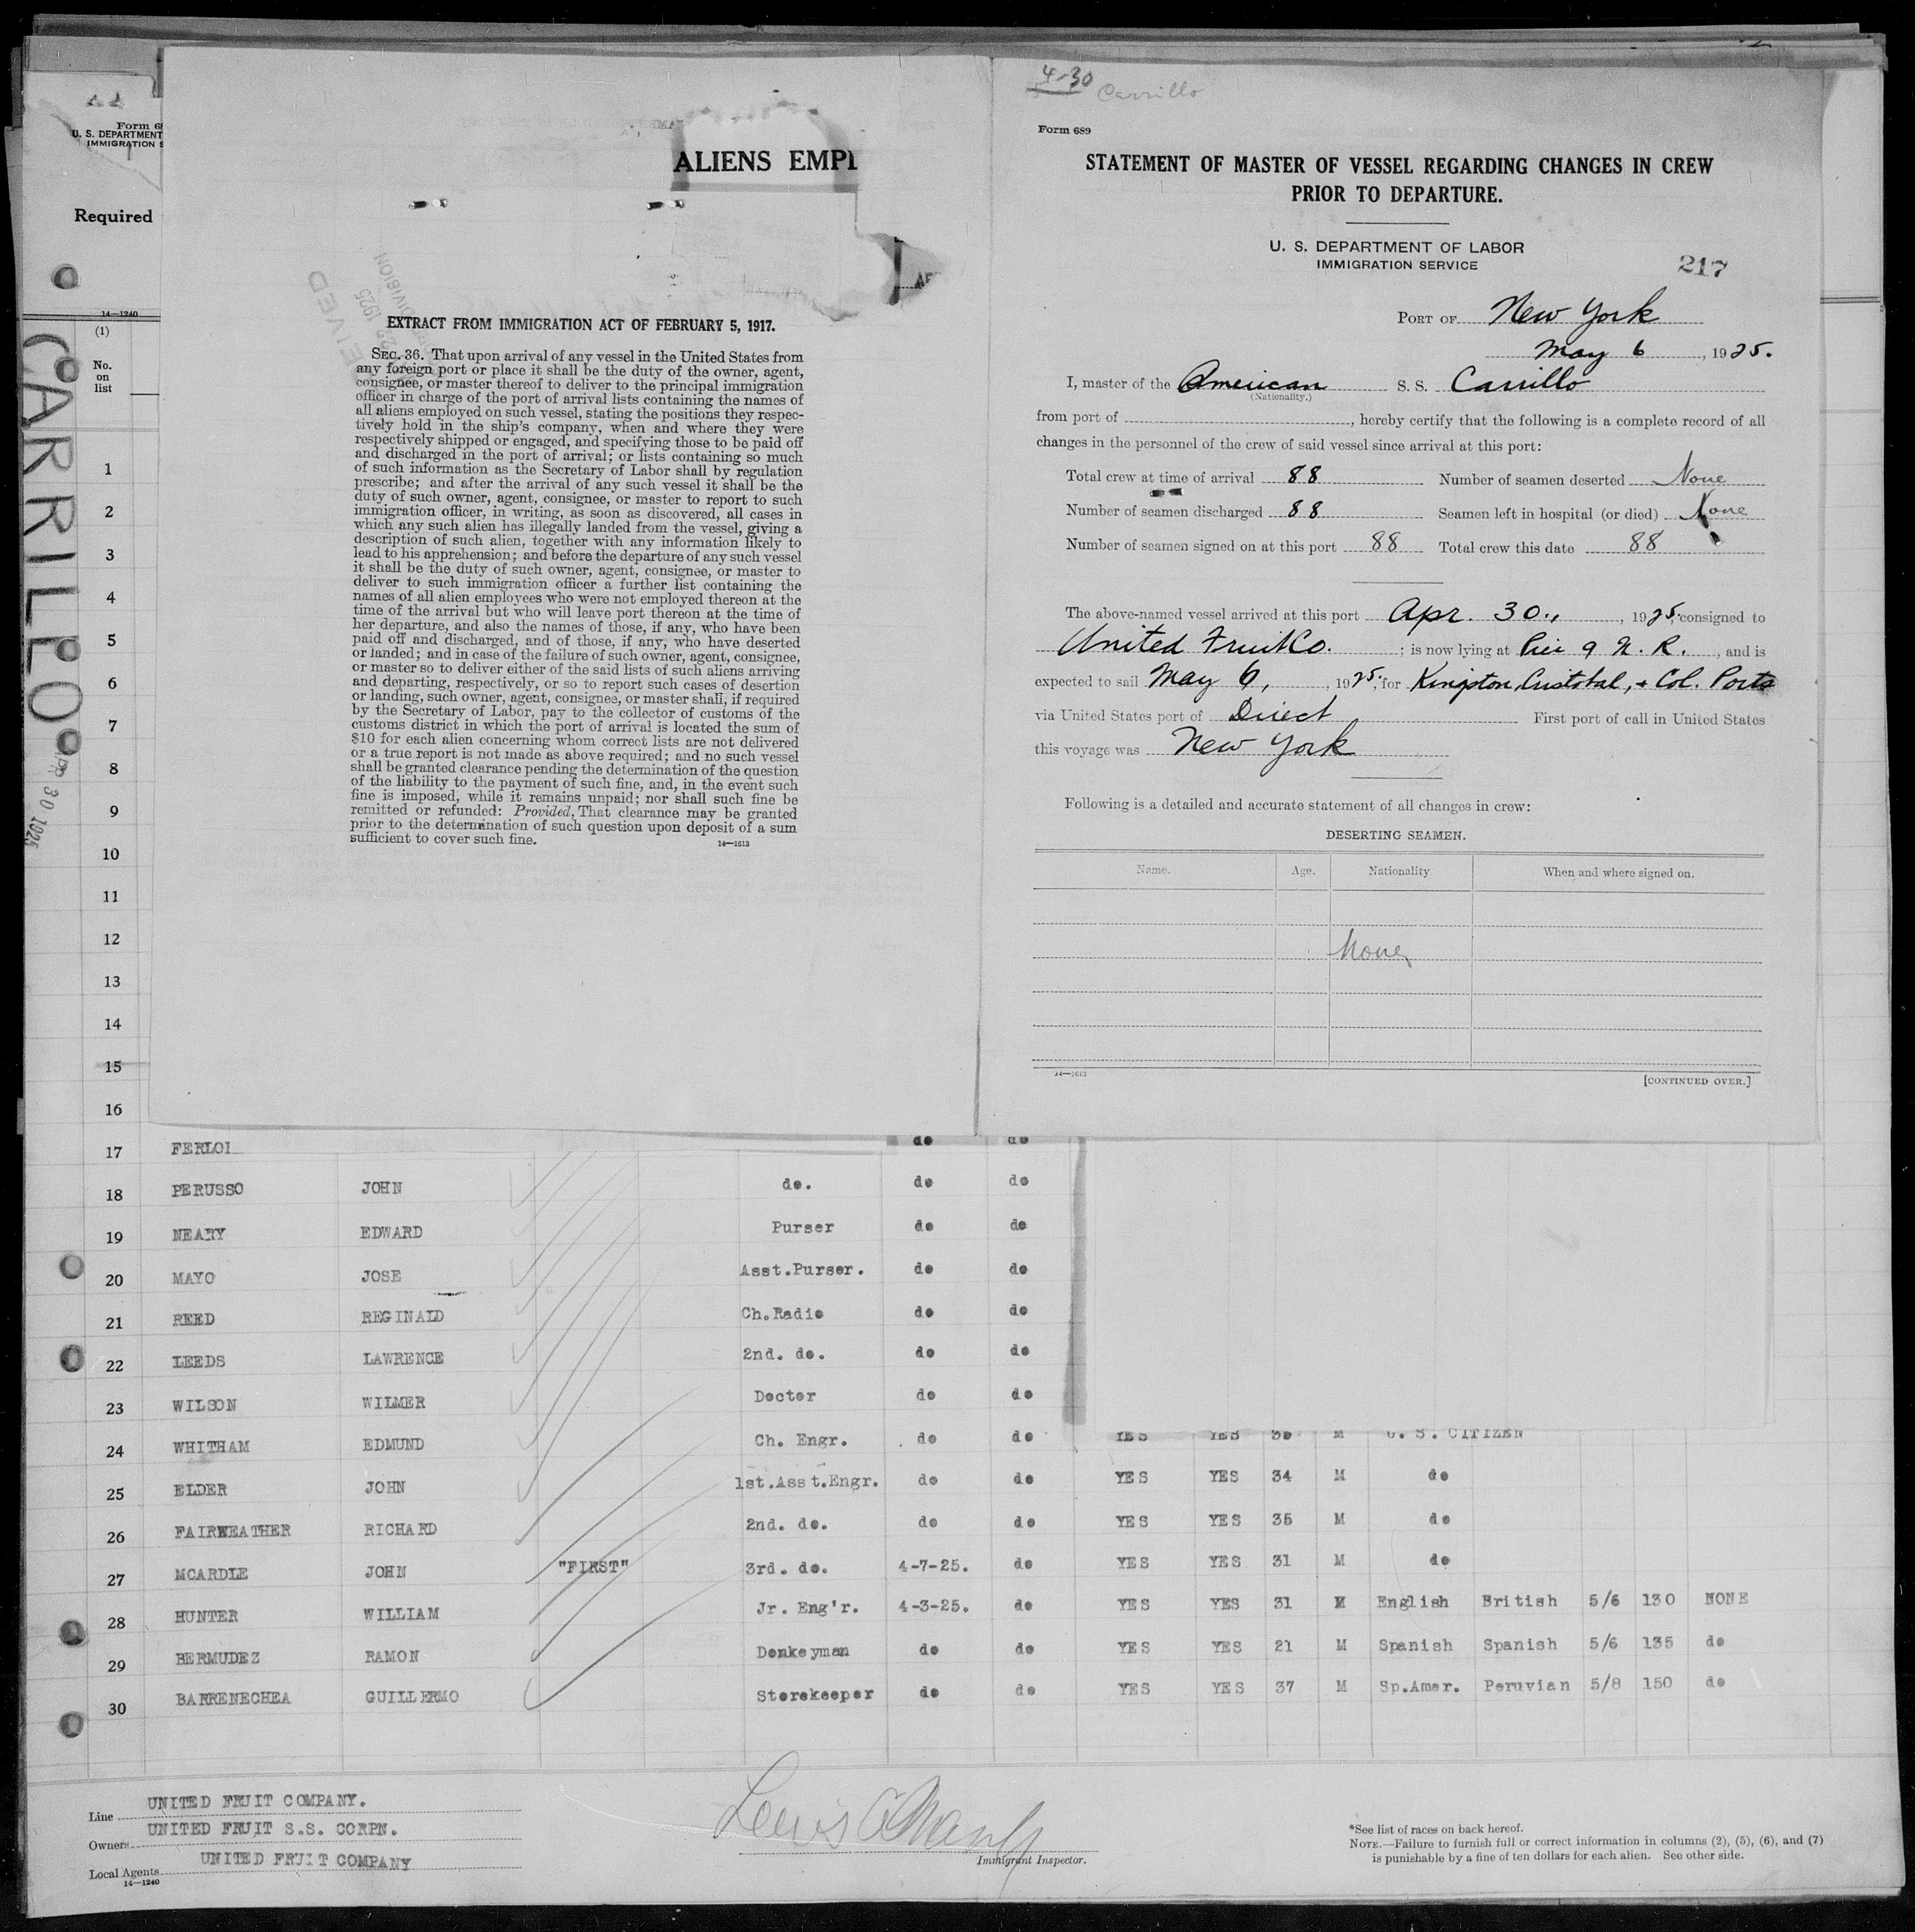 Form 68
U. S. DEPARTMENT
IMMIGRATION S
Required
14—1240
(1)
No.
on
list
CARRILLO
APR 30 1925
1
2
3
4
5
6
7
8
9
10
11
12
13
14
15
16
ALIENS EMPL
EXTRACT FROM IMMIGRATION ACT OF FEBRUARY 5, 1917.
SEC. 36. That upon arrival of any vessel in the United States from
any foreign port or place it shall be the duty of the owner, agent,
consignee, or master thereof to deliver to the principal immigration
officer in charge of the port of arrival lists containing the names of
all aliens employed on such vessel, stating the positions they respec-
tively hold in the ship's company, when and where they were
respectively shipped or engaged, and specifying those to be paid off
and discharged in the port of arrival; or lists containing so much
of such information as the Secretary of Labor shall by regulation
prescribe; and after the arrival of any such vessel it shall be the
duty of such owner, agent, consignee, or master to report to such
immigration officer, in writing, as soon as discovered, all cases in
which any such alien has illegally landed from the vessel, giving a
description of such alien, together with any information likely to
lead to his apprehension; and before the departure of any such vessel
it shall be the duty of such owner, agent, consignee, or master to
deliver to such immigration officer a further list containing the
names of all alien employees who were not employed thereon at the
time of the arrival but who will leave port thereon at the time of
her departure, and also the names of those, if any, who have been
paid off and discharged, and of those, if any, who have deserted
or landed; and in case of the failure of such owner, agent, consignee,
or master so to deliver either of the said lists of such aliens arriving
and departing, respectively, or so to report such cases of desertion
or landing, such owner, agent, consignee, or master shall, if required
by the Secretary of Labor, pay to the collector of customs of the
customs district in which the port of arrival is located the sum of
$10 for each alien concerning whom correct lists are not delivered
or a true report is not made as above required; and no such vessel
shall be granted clearance pending the determination of the question
of the liability to the payment of such fine, and, in the event such
fine is imposed, while it remains unpaid; nor shall such fine be
remitted or refunded: Provided, That clearance may be granted
prior to the determination of such question upon deposit of a sum
sufficient to cover such fine.
14—1613
4-30 Carrillo
Form 689
STATEMENT OF MASTER OF VESSEL REGARDING CHANGES IN CREW
PRIOR TO DEPARTURE.
U. S. DEPARTMENT OF LABOR
IMMIGRATION SERVICE
217
PORT OF New York
May 6, 1925.
I, master of the American S. S. Carrillo
(Nationality.)
from port of , hereby certify that the following is a complete record of all
changes in the personnel of the crew of said vessel since arrival at this port:
Total crew at time of arrival 88 Number of seamen deserted None
Number of seamen discharged 88 Seamen left in hospital (or died) None
Number of seamen signed on at this port 88 Total crew this date 88
The above-named vessel arrived at this port Apr. 30., 1925, consigned to
United Fruit Co. ; is now lying at Pier 9 N. R. , and is
expected to sail May 6, , 1925, for Kingston, Cristobal, + Col. Ports
via United States port of Direct First port of call in United States
this voyage was New York
Following is a detailed and accurate statement of all changes in crew:
DESERTING SEAMEN.
Name. Age. Nationality When and where signed on.
None
14—1613
[CONTINUED OVER.]
17 FERLOI do do
18 PERUSSO JOHN do. do do
19 NEARY EDWARD Purser do do
20 MAYO JOSE Asst.Purser. do do
21 REED REGINALD Ch.Radio do do
22 LEEDS LAWRENCE 2nd. do. do do
23 WILSON WILMER Doctor do do
24 WHITHAM EDMUND Ch. Engr. do do YES YES M U. S. CITIZEN
25 ELDER JOHN 1st.Asst.Engr. do do YES YES 34 M do
26 FAIRWEATHER RICHARD 2nd. do. do do YES YES 35 M do
27 MCARDLE JOHN "FIRST" 3rd. do. 4-7-25. do YES YES 31 M do
28 HUNTER WILLIAM Jr. Eng'r. 4-3-25. do YES YES 31 M English British 5/6 130 NONE
29 BERMUDEZ RAMON Donkeyman do do YES YES 21 M Spanish Spanish 5/6 135 do
30 BARRENECHEA GUILLERMO Storekeeper do do YES YES 37 M Sp.Amer. Peruvian 5/8 150 do
Line UNITED FRUIT COMPANY.
Owners UNITED FRUIT S.S. CORPN.
Local Agents UNITED FRUIT COMPANY
14—1240
Immigrant Inspector.
*See list of races on back hereof.
NOTE.—Failure to furnish full or correct information in columns (2), (5), (6), and (7)
is punishable by a fine of ten dollars for each alien. See other side.